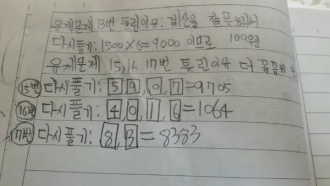 유제문제 13번 틀린이유: 계산을 잘못해서
다시풀기: 1500×6=9000 이므로 100원
유제문제 15, 16, 17번 틀린이유 더
15번 다시풀기: 5 9, 0 7=9705
16번 다시풀기: 4 0 1 6=1064
17번 다시풀기: 8, 3=8383